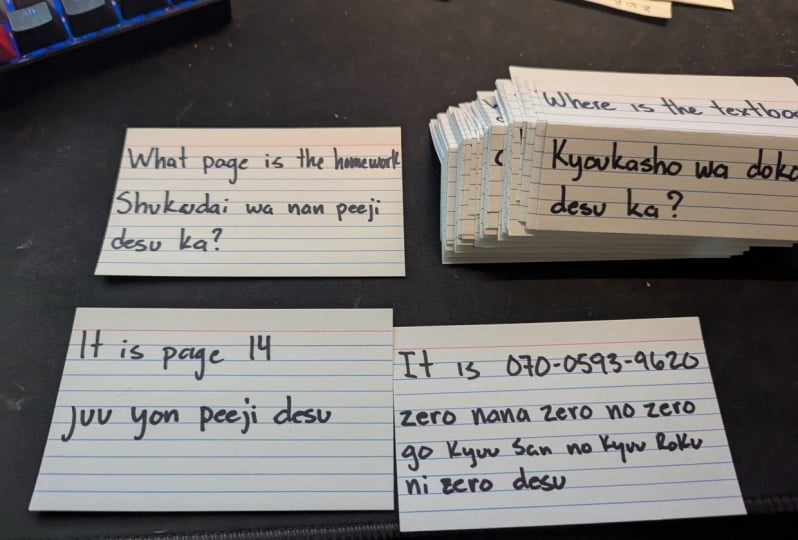 What page is the homework
Shukudai wa nan peeji
desu ka?
Where is the
Kyoukasho wa
desu ka?
It is page 14
juu yon peeji desu
It is 070-0593-9620
zero nana zero no zero
go kyuu san no kyuu Roku
ni zero desu